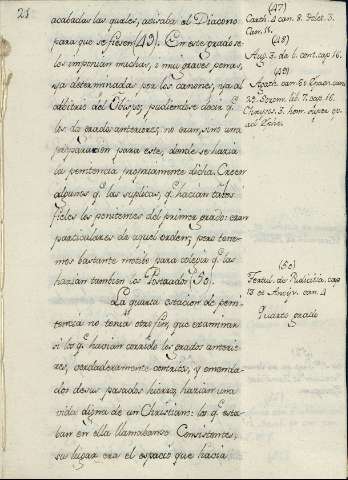 28
acabadas las quales, avisaba el Diacono
para que se fuesen (49). En este grado se
les imponian muchas, i muy graves penas,
ya determinadas por los canones, ya al
arbitrio del Obispo; pudiendose decir q.e
los dos grados anteriores, no eran, sino una
preparacion para este, donde se hacia
la penitencia propriamente dicha. Creen
algunos q.e las suplicas, q.e hacian a los
fieles los penitentes del primer grado eran
particulares de aquel orden; pero tene-
mos bastante motibo para creer q.e las
hacian tambien los Postrados (50).
La quarta estacion de peni-
tencia no tenia otro fin, que examinar
si los q.e havian corrido los grados anterio-
res, verdaderamente contritos, y enmenda-
dos de sus pasados hierros, hacian una
vida digna de un Christiano: los q.e esta-
ban en ella llamabanse Consistentes,
su lugar era el espacio que hacia
(47)
Carth. 4 can. 8. Tolet. 3.
Can. 11.
(48)
Aug. 3. de b. cont. cap. 16.
(49)
Agath. can. Ex Graec. can.
29. Sozom. lib. 7. cap. 16.
Chrysos. 3. hom. super ep.
ad Ephe.
(50)
Tertul. de Pudicitia, cap.
13 et Ancyr. can. 4
Quarto grado